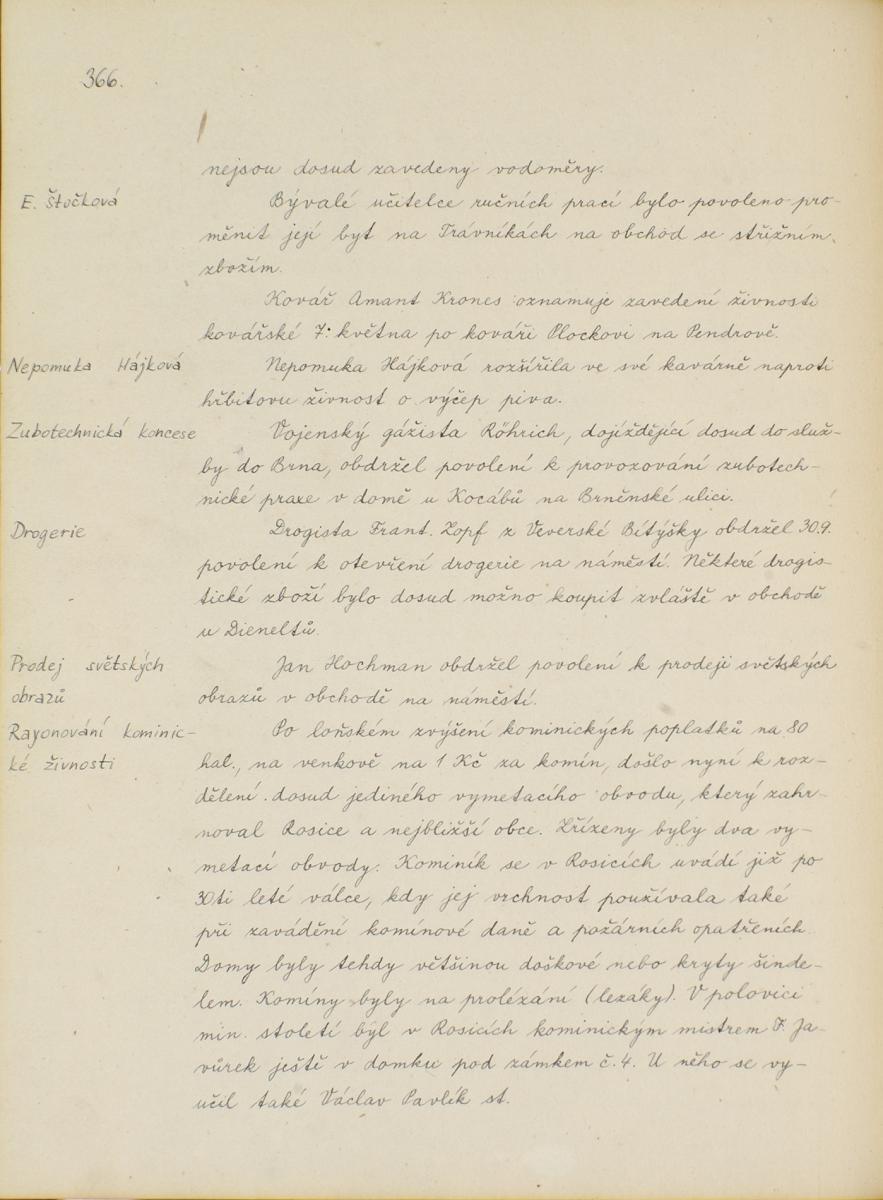 366.
nejsou dosud zavedeny vodoměry.
E. Štočková
Bývalé učitelce ručních prací bylo povoleno pro-
měnit její byt na Trávníkách na obchod se střižním
zbožím.
Kovář Amant Krones oznamuje zavedení živnosti
kovářské 7. května po kováři Plockovi na Pendrově.
Nepomuka Hájková
Nepomuka Hájková rozšířila ve své kavárně naproti
hřbitovu živnost o výčep piva.
Zubotechnická koncese
Vojenský gážista Röhrich, dojíždějící dosud do služ-
by do Brna, obdržel povolení k provozování zubotech-
nické praxe v domě u Kocábů na Brněnské ulici.
Drogerie
Drogista Frant. Zopf z Veverské Bítýšky obdržel 30.9.
povolení k otevření drogerie na náměstí. Některé drogis-
tické zboží bylo dosud možno koupit zvláště v obchodě
u Dieneltů.
Prodej světských
obrazů
Jan Hochman obdržel povolení k prodeji světských
obrazů v obchodě na náměstí.
Rayonování kominic-
ké živnosti
Po loňském zvýšení kominických poplatků na 80
hal., na venkově na 1 Kč za komín, došlo nyní k roz-
dělení dosud jediného vymetacího obvodu, který zahr-
noval Rosice a nejbližší obce. Zřízeny byly dva vy-
metací obvody. Kominík se v Rosicích uvádí již po
30ti leté válce, kdy jej vrchnost používala také
při zavádění komínové daně a požárních opatřeních.
Domy byly tehdy většinou doškové nebo kryty šinde-
lem. Komíny byly na prolézání (lezáky). V polovici
min. století byl v Rosicích kominickým mistrem F. Ja-
vůrek ještě v domku pod zámkem č. 4. U něho se vy-
učil také Václav Pavlík st.